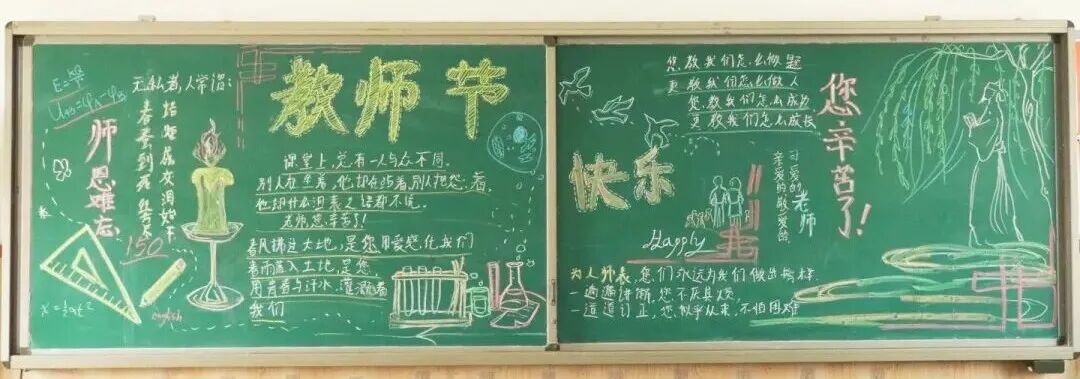 教师节
快乐
您辛苦了!
师恩难忘
无私者,人常谓:
春蚕到死丝方尽
蜡炬成灰泪始干
U_AB=φ_A-φ_B
x=½at²
150
english
课堂上,总有一人与众不同。
别人在坐着,他却在站着,别人把您看着,
他却什么
老师您辛苦了!
春风拂过大地,是您用爱感化我们
春雨落入土地,是您
用青春与汗水,灌溉着
我们
您教我们怎么做题
更教我们怎么做人
您教我们怎么成功
更教我们怎么成长
可爱的老师
亲爱的敬爱的
Happly
为人师表,您们永远为我们做出榜样
一遍遍讲解,您不厌其烦,
一道道订正,您似乎从来,不怕困难